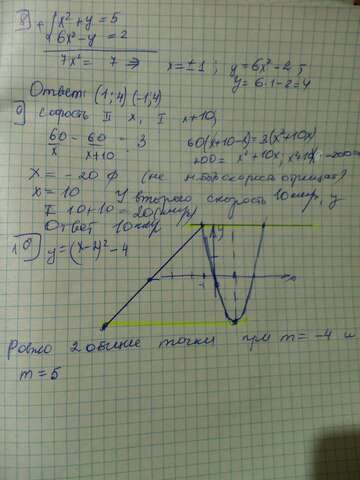 8) + { x² + y = 5
6x² - y = 2
7x² = 7 => x = ±1; y = 6x² - 2;
y = 6·1 - 2 = 4
Ответ (1; 4) (-1; 4)
9) скорость II x, I x+10,
60/x - 60/x+10 = 3 60(x+10-x) = 3(x²+10x)
200 = x² + 10x; x²+10x-200=0
X = -20 ф (не м.б. скорость отрицат)
x = 10 У второго скорость 10 км/ч, у
I 10+10 = 20 (км/ч)
Ответ 10 км/ч
10) y = (x-2)² - 4
y
x
-1
Ровно 2 общие точки при m = -4 и
m = 5